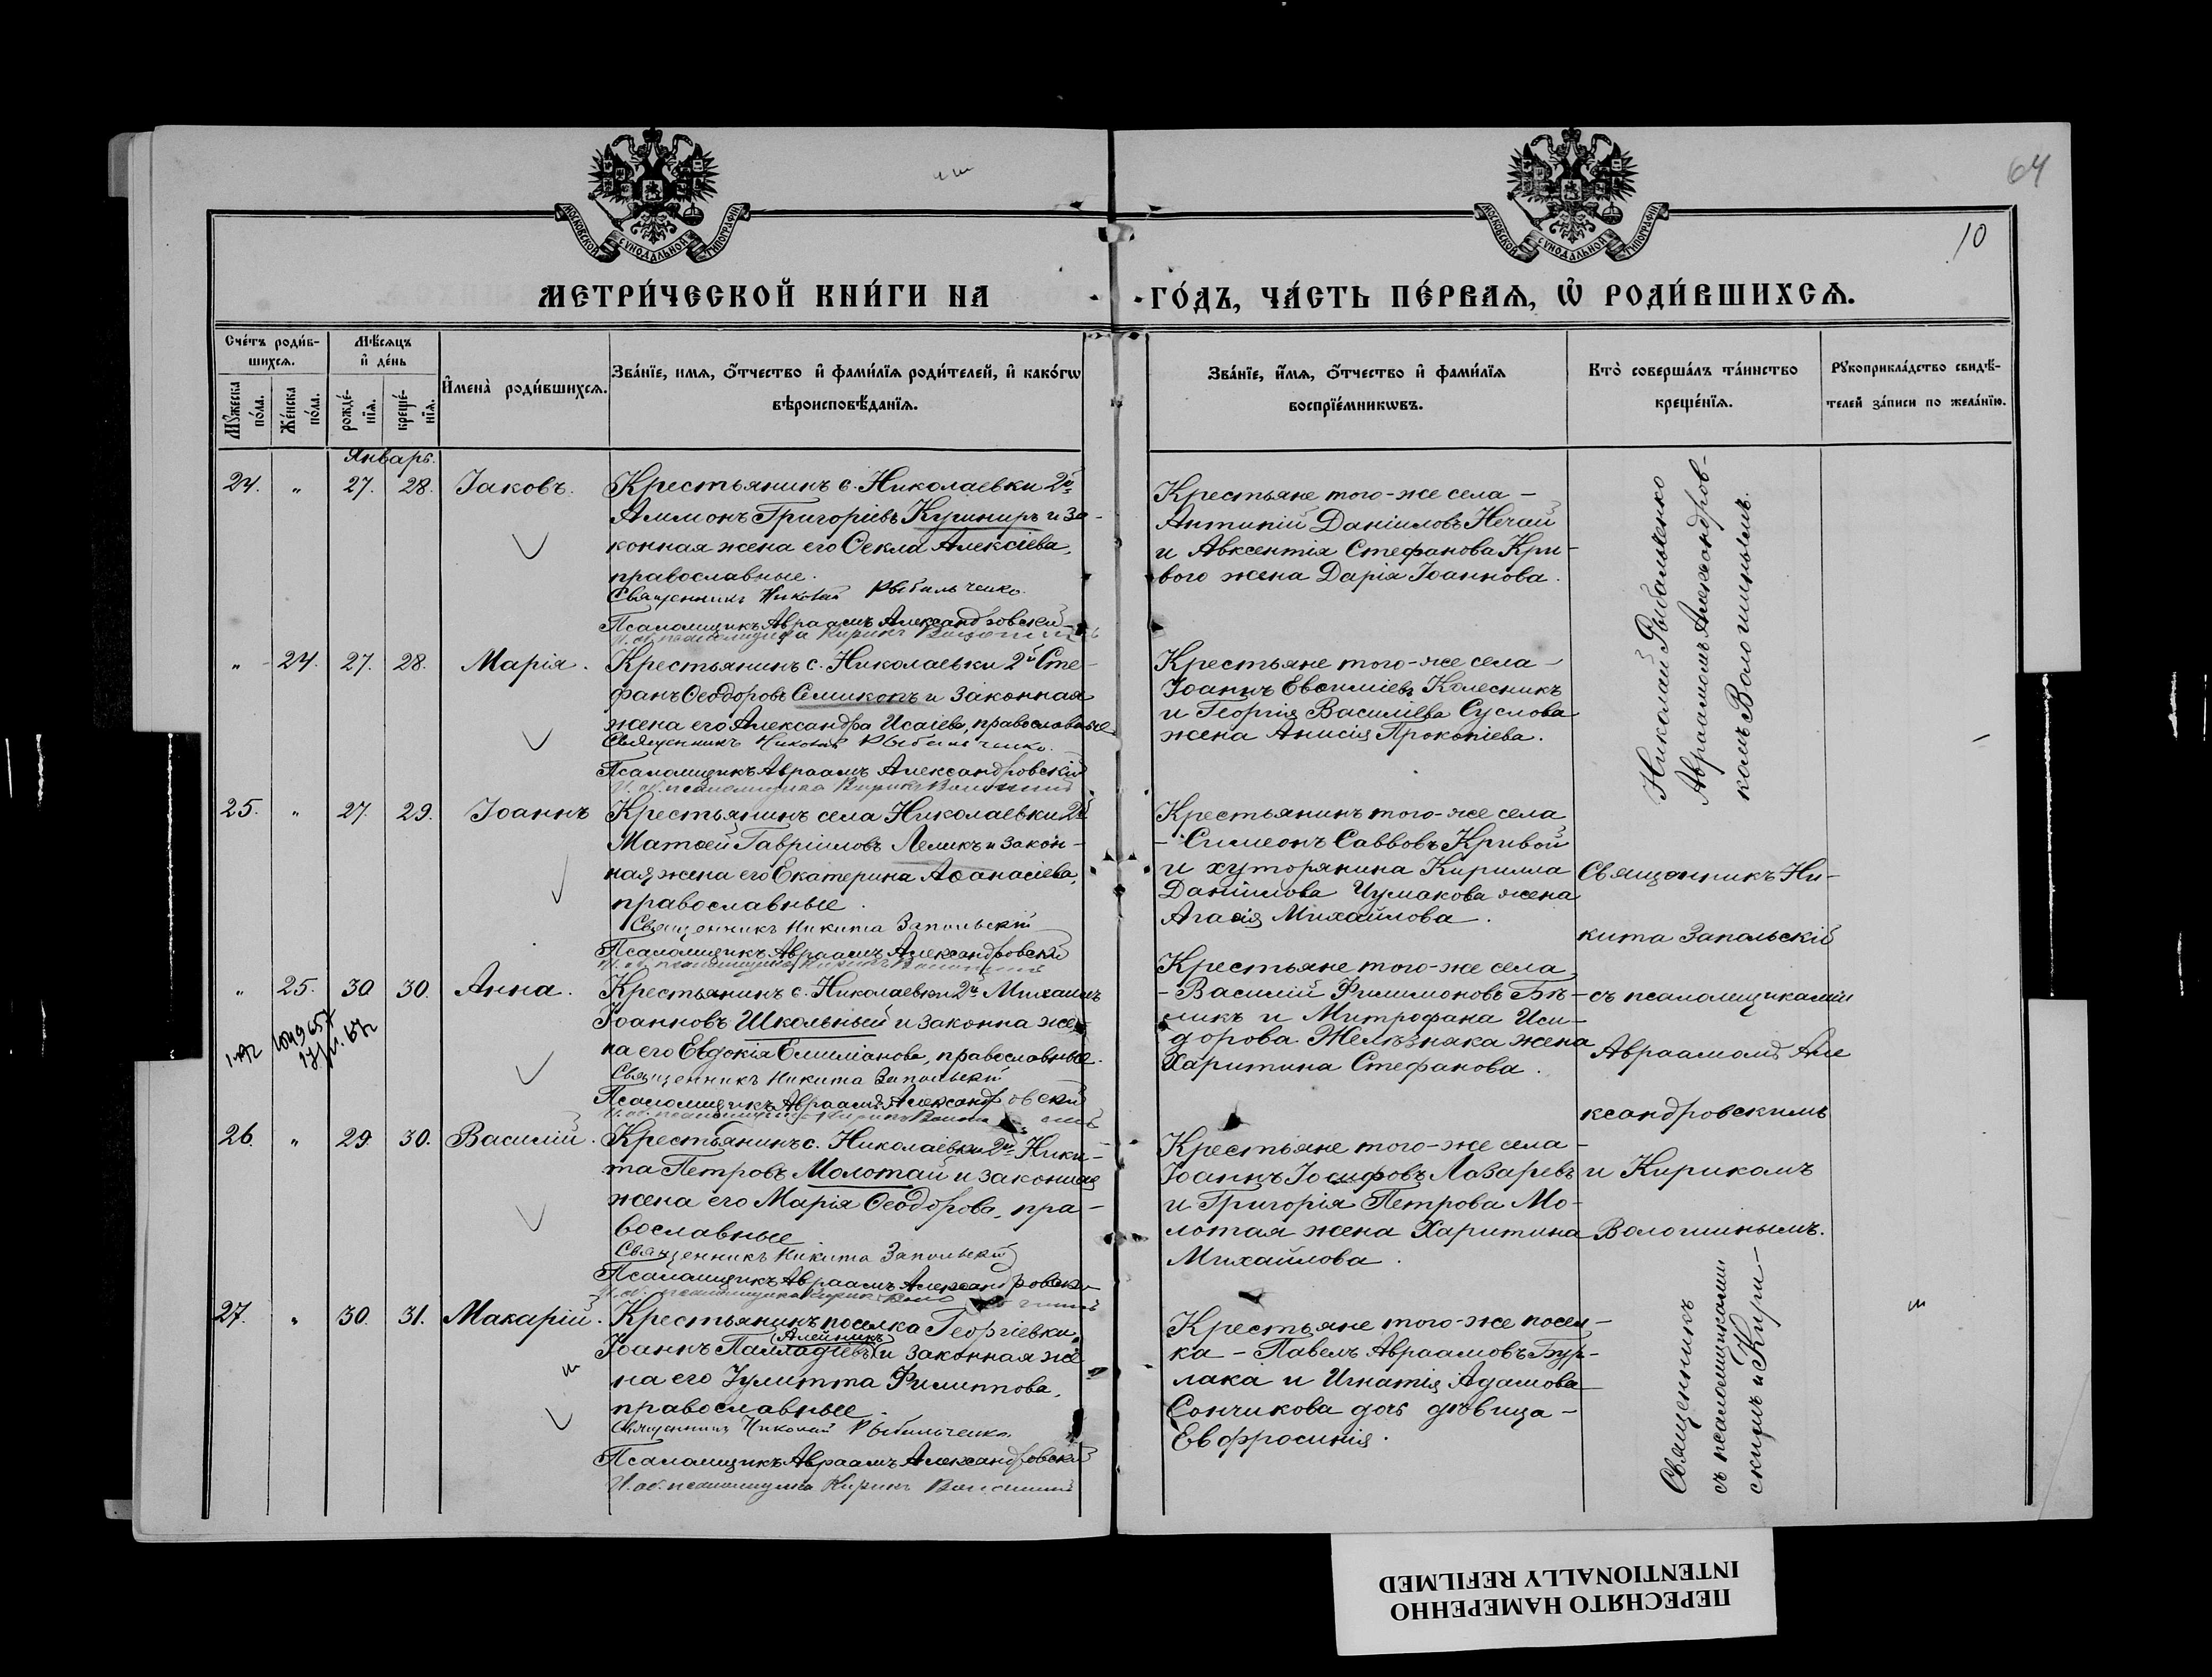 64
10
МОСКОВСКОЙ СѴНОДАЛЬНОЙ ТИПОГРАФІИ
МОСКОВСКОЙ СѴНОДАЛЬНОЙ ТИПОГРАФІИ
МЕТРИ́ЧЕСКОЙ КНИ́ГИ НА
ГО́ДЪ, ЧА́СТЬ ПЕ́РВАѦ, Ѽ РОДИ́ВШИХСѦ.
Сче́тъ роди́вшихся.
Мѣ́сяцъ и҆ де́нь
Мꙋ́жеска по́ла.
Же́нска по́ла.
рожде́нїѧ.
креще́нїѧ.
И҆мена̀ роди́вшихсѧ.
Зва́нїе, имѧ, о҆́тчество и҆ фами́лїѧ роди́телей, и҆ како́гѡ
вѣроисповѣ́данїѧ.
Зва́нїе, и҆́мѧ, о҆́тчество и҆ фами́лїѧ
воспрїе́мникѡвъ.
Кто̀ соверша́лъ та́инство
креще́нїѧ.
Рꙋкоприкла́дство свидѣ́-
телей за́писи по жела́нїю.
Январь.
24. " 27. 28. Іаковъ.
Крестьянинъ с. Николаевки 2й
Аммонъ Григоріевъ Кушниръ и за-
конная жена его Ѳекла Алексіева,
православные.
Священникъ Николай Рыбальченко.
Псаломщикъ Авраамъ Александровскій
И. об. псаломщика Кирикъ Волошинъ
Крестьяне того-же села -
Антипій Даніиловъ Нечай
и Авксентія Стефанова Кри-
вого жена Дарія Іоаннова.
Николай Рыбальченко
Авраамомъ Александров-
камъ Волошинымъ.
" 24. 27. 28. Марія.
Крестьянинъ с. Николаевки 2й Сте-
фанъ Ѳеодоровъ Семикопъ и законная
жена его Александра Исаіева, православные
Священникъ Николай Рыбальченко.
Псаломщикъ Авраамъ Александровскій
И. об. псаломщика Кирикъ Волошинъ
Крестьяне того-же села -
Іоаннъ Евѳиміевъ Колесникъ
и Георгія Василіева Суслова
жена Анисія Прокопіева.
25. " 27. 29. Іоаннъ
Крестьянинъ села Николаевки 2й
Матѳей Гавріиловъ Лемикъ и закон-
ная жена его Екатерина Аѳанасіева,
православные.
Священникъ Никита Запольскій
Псаломщикъ Авраамъ Александровскій
И. об. псаломщика Кирикъ Волошинъ
Крестьянинъ того-же села
- Симеонъ Саввовъ Кривой
и хуторянина Кирилла
Даніилова Чумакова жена
Агаѳія Михайлова.
Священникъ Ни-
кита Запольскій
съ псаломщиками
Авраамомъ Але
ксандровскимъ
и Кирикомъ
Волошинымъ.
" 25. 30. 30. Анна.
Крестьянинъ с. Николаевки 2й Михаилъ
Іоанновъ Школьный и законна же-
на его Евдокія Емиліанова, православные.
Священникъ Никита Запольскій
Псаломщикъ Авраамъ Александровскій
Крестьяне того-же села
- Василій Филимоновъ Бѣ-
ликъ и Митрофана Иси-
дорова Желѣзняка жена
Харитина Стефанова.
26. " 29. 30. Василій.
Крестьянинъ с. Николаевки 2й Ники-
та Петровъ Молотай и законная
жена его Марія Ѳеодорова, пра-
вославные
Священникъ Никита Запольскій
Псаломщикъ Авраамъ Александровскій
Крестьяне того-же села -
Іоаннъ Іосифовъ Лазаревъ
и Григорія Петрова Мо-
лотая жена Харитина
Михайлова.
27. " 30. 31. Макарій.
Крестьянинъ поселка Георгіевки
(Алейникъ)
Іоаннъ Палладіевъ и законная же
на его Іулитта Филиппова,
православные.
Священникъ Николай Рыбальченко.
Псаломщикъ Авраамъ Александровскій
И. об. псаломщика Кирикъ Волошинъ
Крестьяне того-же посел-
ка - Павелъ Авраамовъ Бур-
лака и Игнатія Адамова
Сончикова дочь дѣвица -
Евфросинія.
Священникъ
съ псаломщиками
скимъ и Кири-
ПЕРЕСНЯТО НАМЕРЕННО
INTENTIONALLY REFILMED